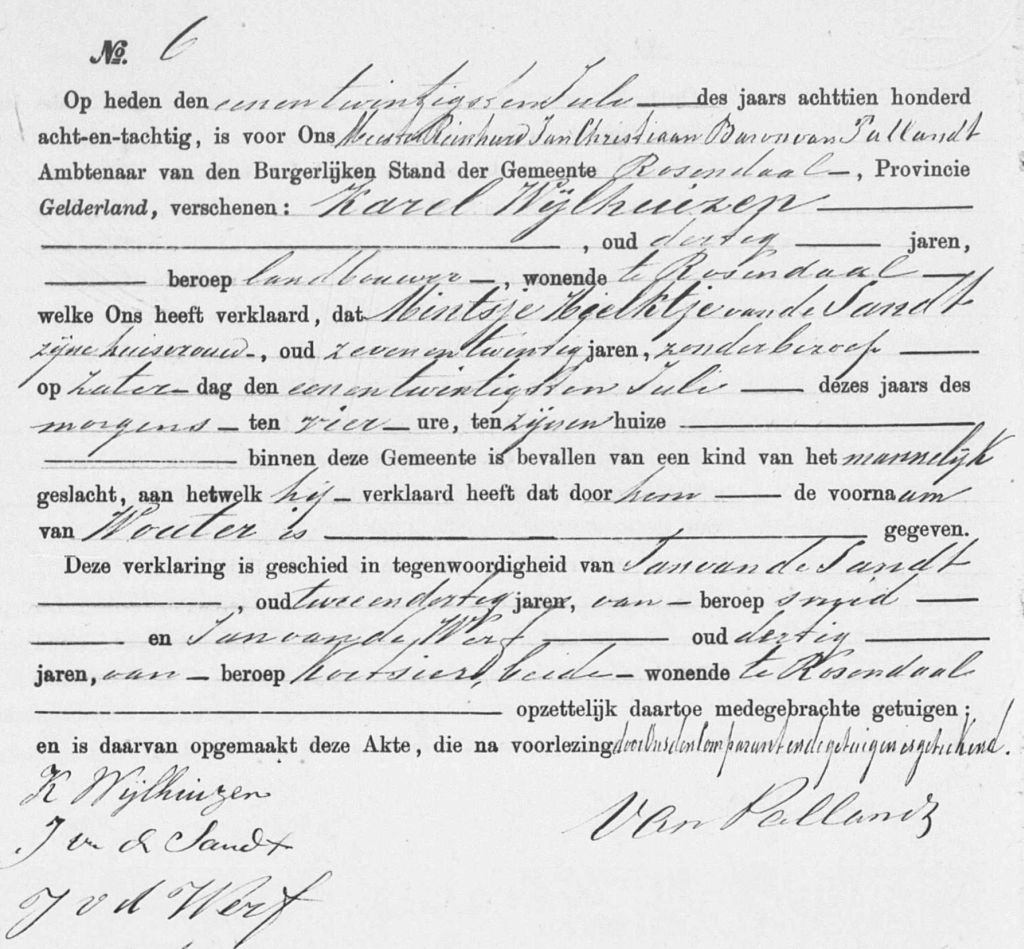 No. 6
Op heden den eenentwintigsten Juli des jaars achttien honderd
acht-en-tachtig, is voor Ons Meester Reinhard Jan Christiaan Baron van Pallandt
Ambtenaar van den Burgerlijken Stand der Gemeente Rosendaal, Provincie
Gelderland, verschenen: Karel Wijlhuizen
, oud dertig jaren,
beroep landbouwer, wonende te Rosendaal
welke Ons heeft verklaard, dat Mintsje van de Sandt
zijne huisvrouw, oud zevenentwintig jaren, zonder beroep
op Zaterdag den eenentwintigsten Juli dezes jaars des
morgens ten vier ure, ten zijnen huize
binnen deze Gemeente is bevallen van een kind van het mannelijk
geslacht, aan hetwelk hij verklaard heeft dat door hem de voornaam
van Wouter is gegeven.
Deze verklaring is geschied in tegenwoordigheid van Jan van de Sandt
, oud tweeendertig jaren, van beroep smid
en Jan van de Werf oud dertig
jaren, van beroep koetsier, beide wonende te Rosendaal
opzettelijk daartoe medegebrachte getuigen;
en is daarvan opgemaakt deze Akte, die na voorlezing door Ons den Comparant en de getuigen is geteekend.
K Wijlhuizen
van Pallandt
J v d Sandt
J v d Werf